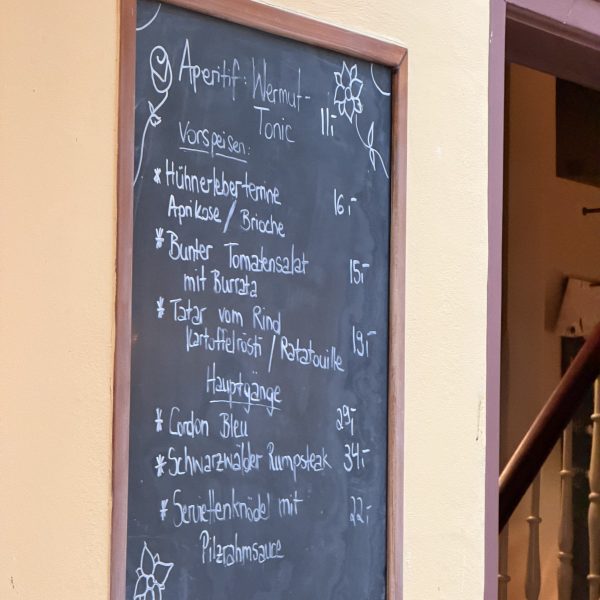 Aperitif: Wermut-
Tonic 11,-
Vorspeisen:
* Hühnerleberterrine
Aprikose / Brioche 16,-
* Bunter Tomatensalat
mit Burrata 15,-
* Tatar vom Rind
Kartoffelrösti / Ratatouille 19,-
Hauptgänge
* Cordon Bleu 29,-
* Schwarzwälder Rumpsteak 34,-
* Serviettenknödel mit 22,-
Pilzrahmsauce